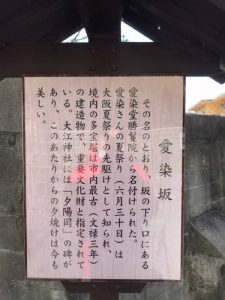 愛染坂
その名のとおり、坂の下り口にある
愛染堂勝鬘院から名付けられた。
愛染さんの夏祭り（六月三十日）は
大阪夏祭りの先駆けとして知られ、
境内の多宝塔は市内最古（文禄三年）
の建造物で、重要文化財と指定されて
いる。大江神社には「夕陽岡」の碑が
あり、このあたりからの夕焼けは今も
美しい。